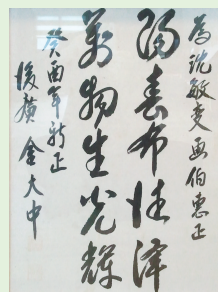 為沈敏画伯惠正
陽春布德澤
萬物生光輝
癸酉年新正
後廣 金大中